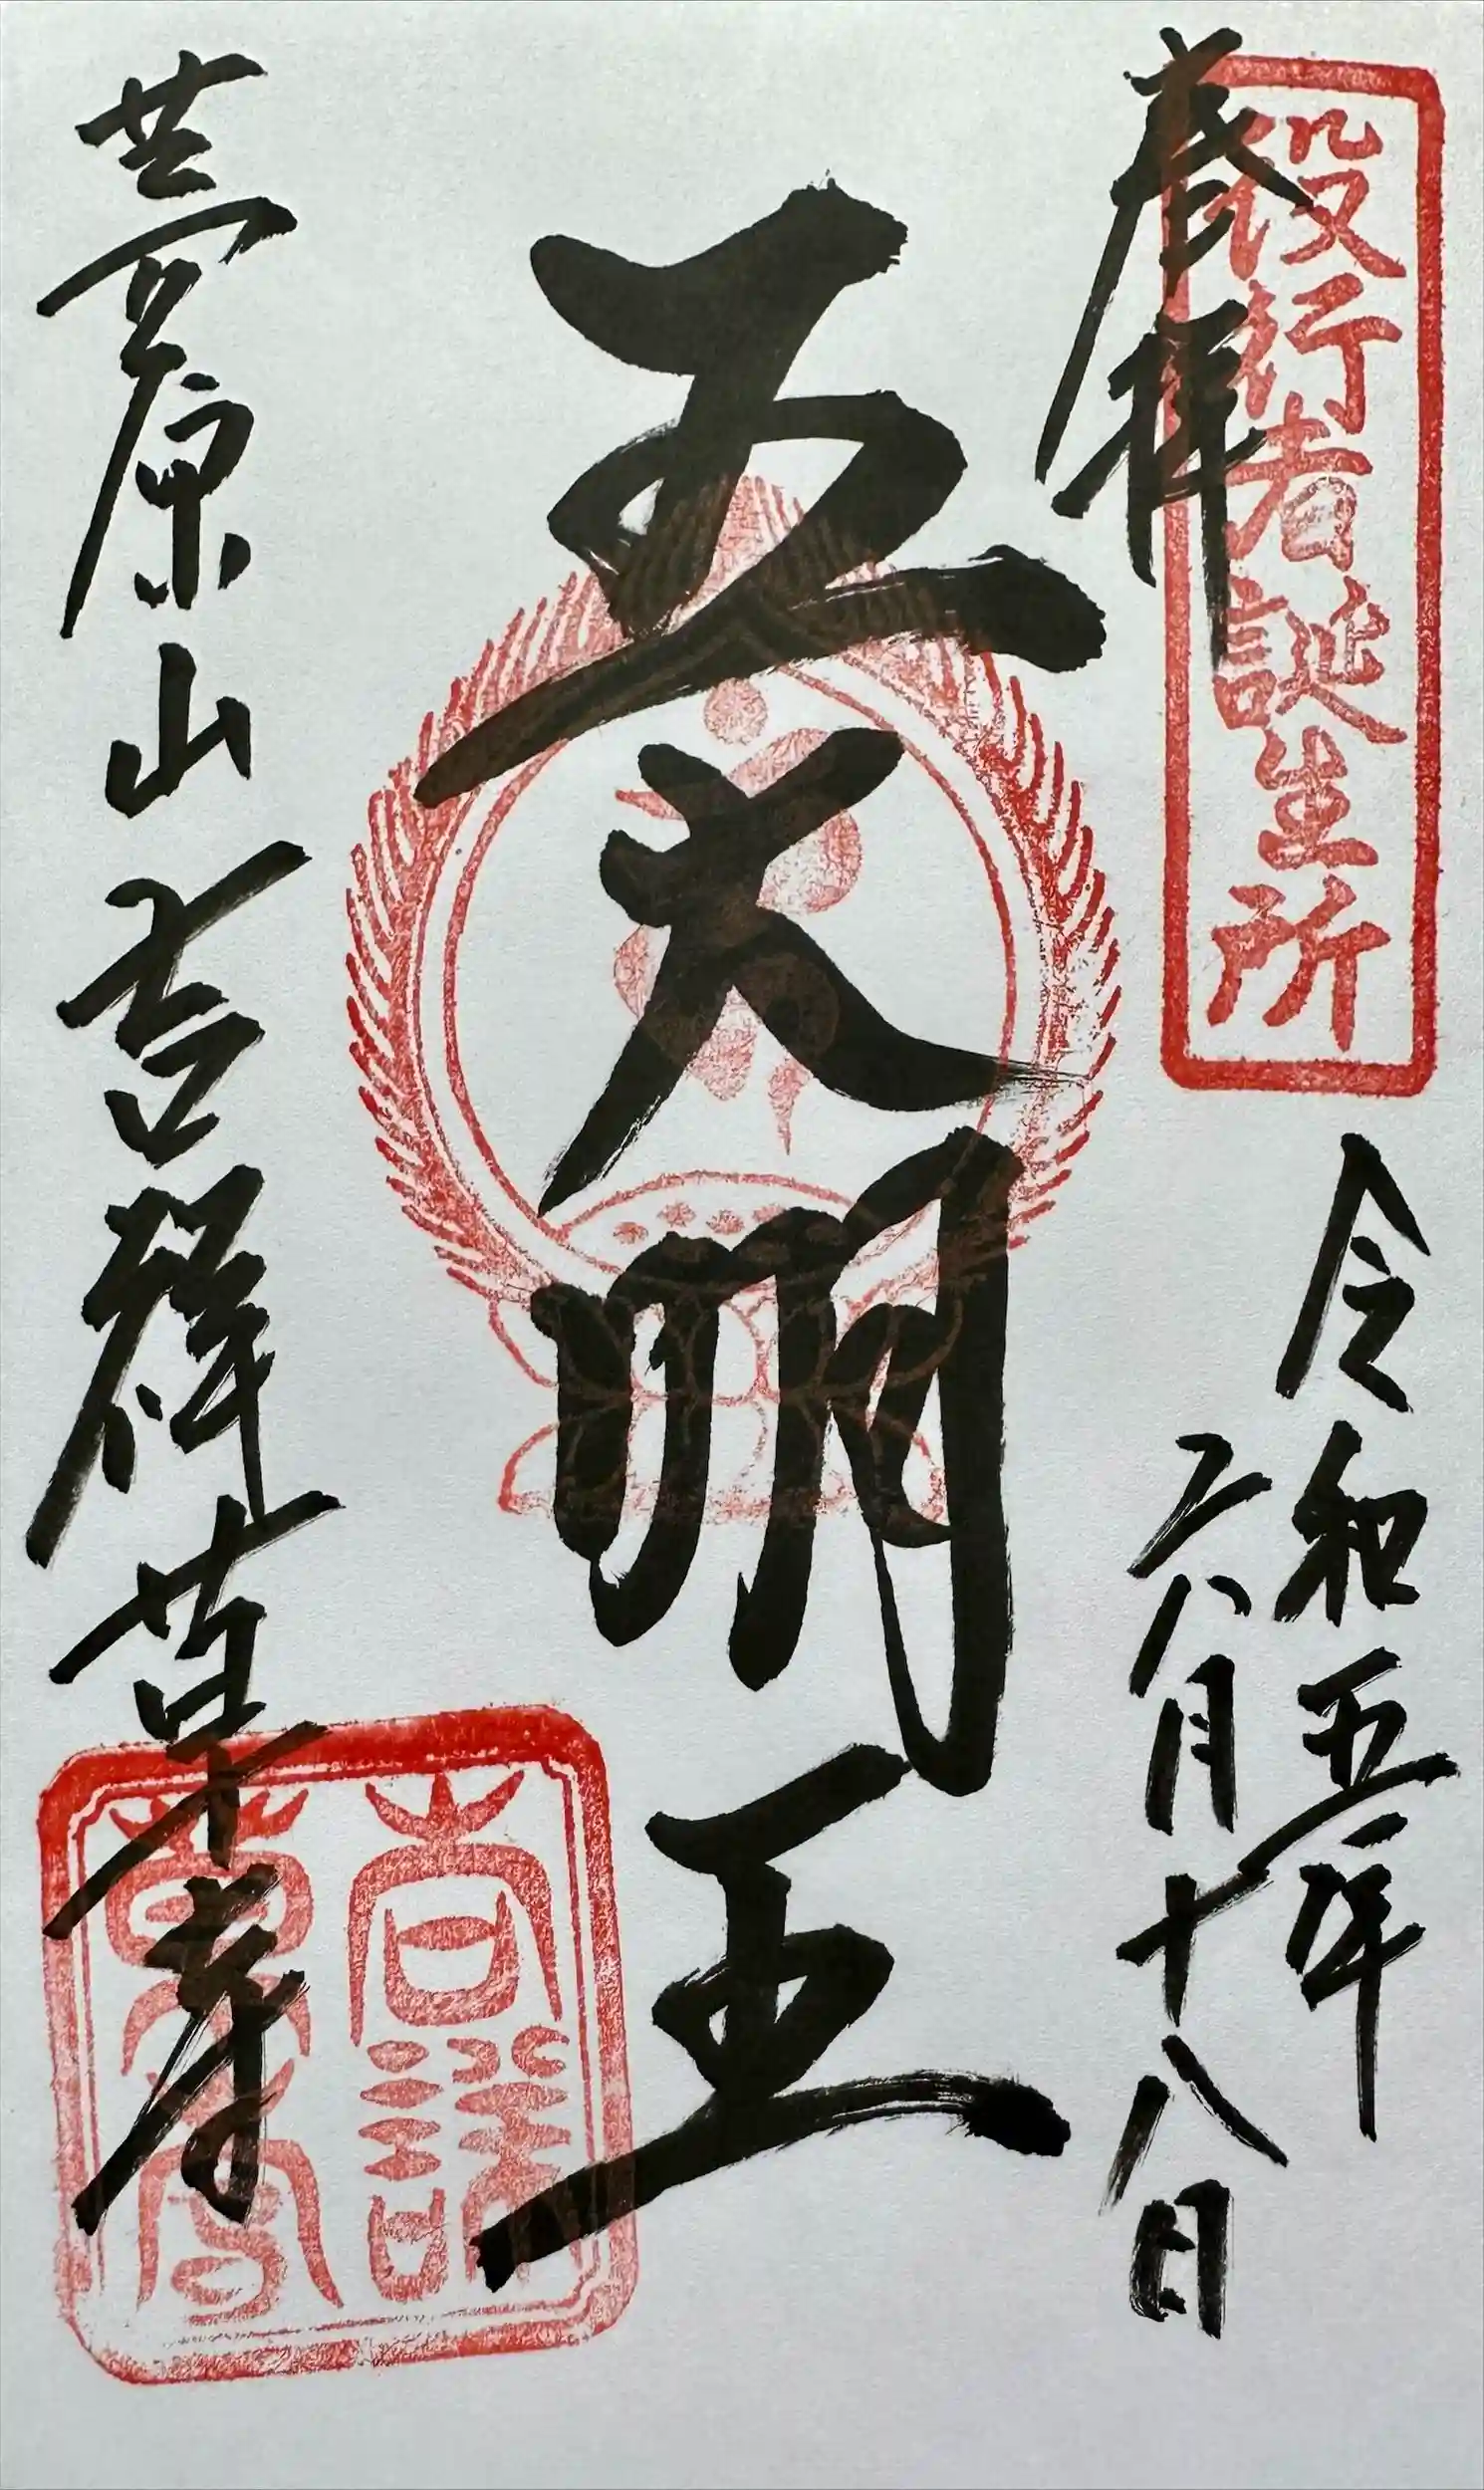 役行者誕生所
奉拝
令和五年
六月十八日
五大明王
茅原山吉祥草寺